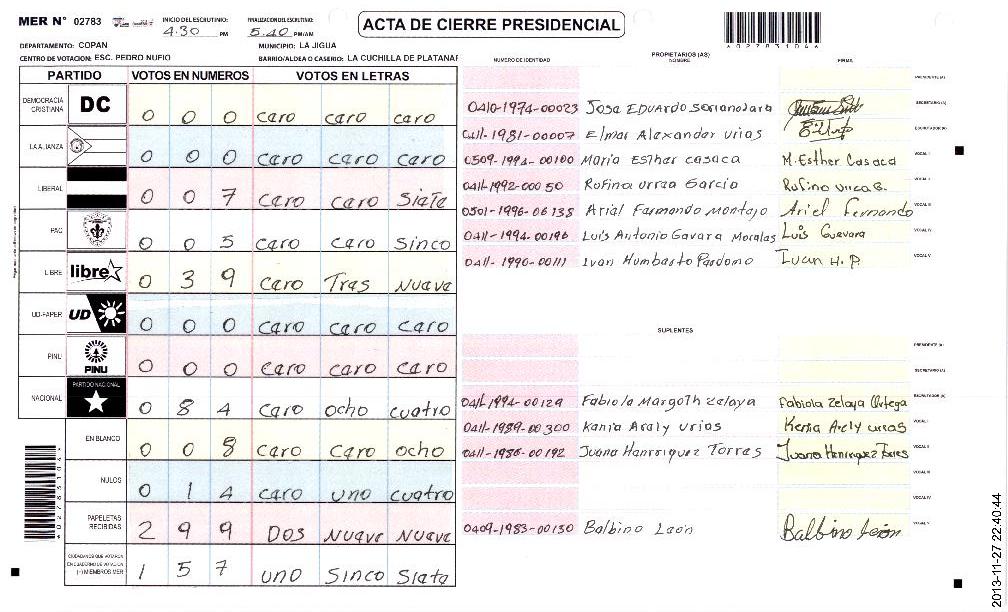 MER N° 02783 INICIO DEL ESCRUTINIO: 4:30 PM FINALIZACION DEL ESCRUTINIO: 5.40 PM/AM
ACTA DE CIERRE PRESIDENCIAL
DEPARTAMENTO: COPAN MUNICIPIO: LA JIGUA
CENTRO DE VOTACION: ESC. PEDRO NUFIO BARRIO/ALDEA O CASERIO: LA CUCHILLA DE PLATANAR
PARTIDO VOTOS EN NUMEROS VOTOS EN LETRAS
DEMOCRACIA CRISTIANA DC 0 0 0 caro caro caro
LA ALIANZA 0 0 0 caro caro caro
LIBERAL 0 0 7 caro caro siate
PAC 0 0 5 caro caro sinco
LIBRE libre 0 3 9 caro Tras Nuave
UD-FAPER UD 0 0 0 caro caro caro
PINU PINU 0 0 0 caro caro caro
NACIONAL PARTIDO NACIONAL 0 8 4 caro ocho cuatro
EN BLANCO 0 0 8 caro caro ocho
NULOS 0 1 4 caro uno cuatro
PAPELETAS RECIBIDAS 2 9 9 Dos Nuave Nuave
CIUDADANOS QUE VOTARON EN CUADERNO DE VOTACION (+) MIEMBROS MER 1 5 7 uno Sinco Siata
PROPIETARIOS (AS)
NUMERO DE IDENTIDAD NOMBRE FIRMA
PRESIDENTE (A)
0410-1974-00023 Josa Eduardo soriano lara SECRETARIO (A)
0411-1981-00007 Elmar Alexander urias ESCRUTADOR (A)
0509-1994-00100 Maria Esther casaca M. Esther Casaca VOCAL I
0411-1992-00050 Rufina urraa Garcia VOCAL II
0501-1996-06138 Arial Farmando Montajo Ariel Fernando VOCAL III
0411-1994-00196 Luis Antonio Gavara Moralas Luis Guevara VOCAL IV
0411-1990-00111 Ivan Humbarto Pardomo Ivan H. P. VOCAL V
SUPLENTES
PRESIDENTE (A)
SECRETARIO (A)
0411-1994-00129 Fabiola Margoth Zelaya Fabiola Zelaya Ortega ESCRUTADOR (A)
0411-1989-00300 Kania Araly urias Kenia Arely urias VOCAL I
0411-1986-00192 Juana Hanrriquez Torras Juana Henriquez Torres VOCAL II
VOCAL III
VOCAL IV
0409-1983-00130 Balbino Laon Balbino León VOCAL V
2013-11-27 22:40:44